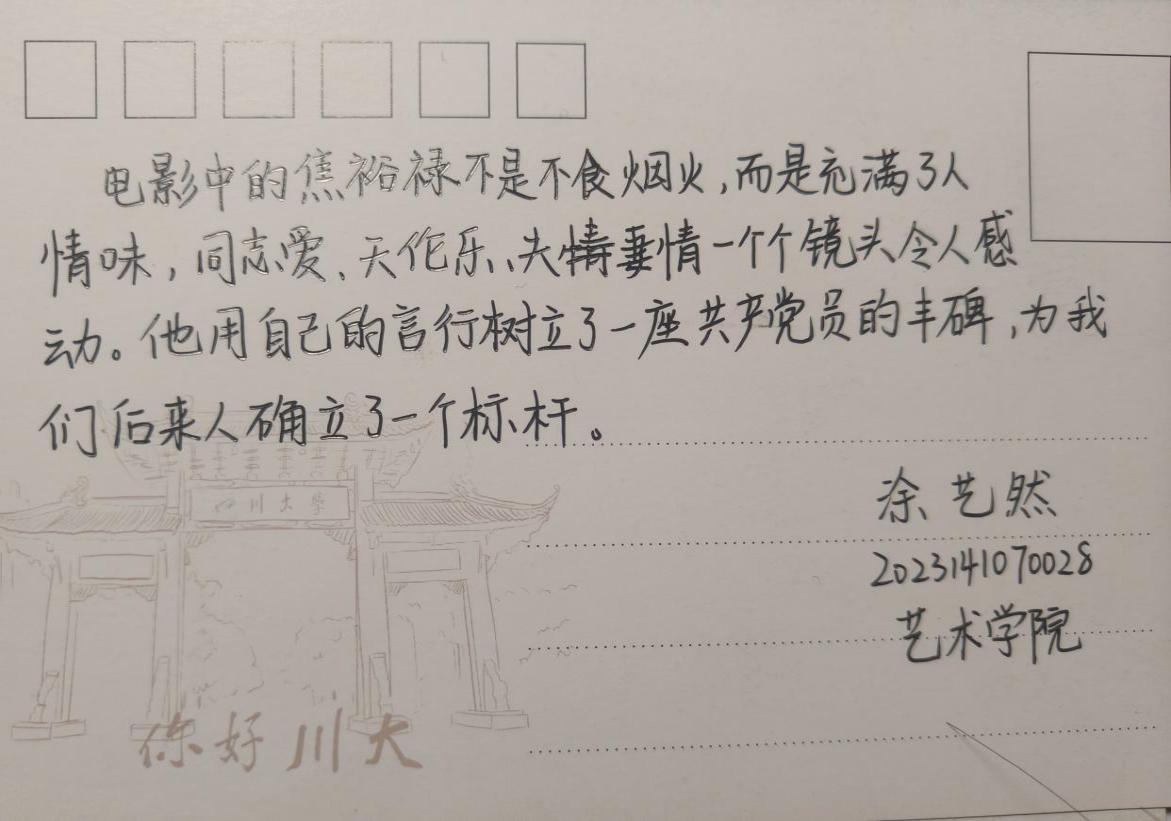 电影中的焦裕禄不是不食烟火，而是充满了人
情味，同志爱、天伦乐、夫妻情一个个镜头令人感
动。他用自己的言行树立了一座共产党员的丰碑，为我
们后来人确立了一个标杆。
四川大学
涂艺然
2023141070028
艺术学院
你好川大